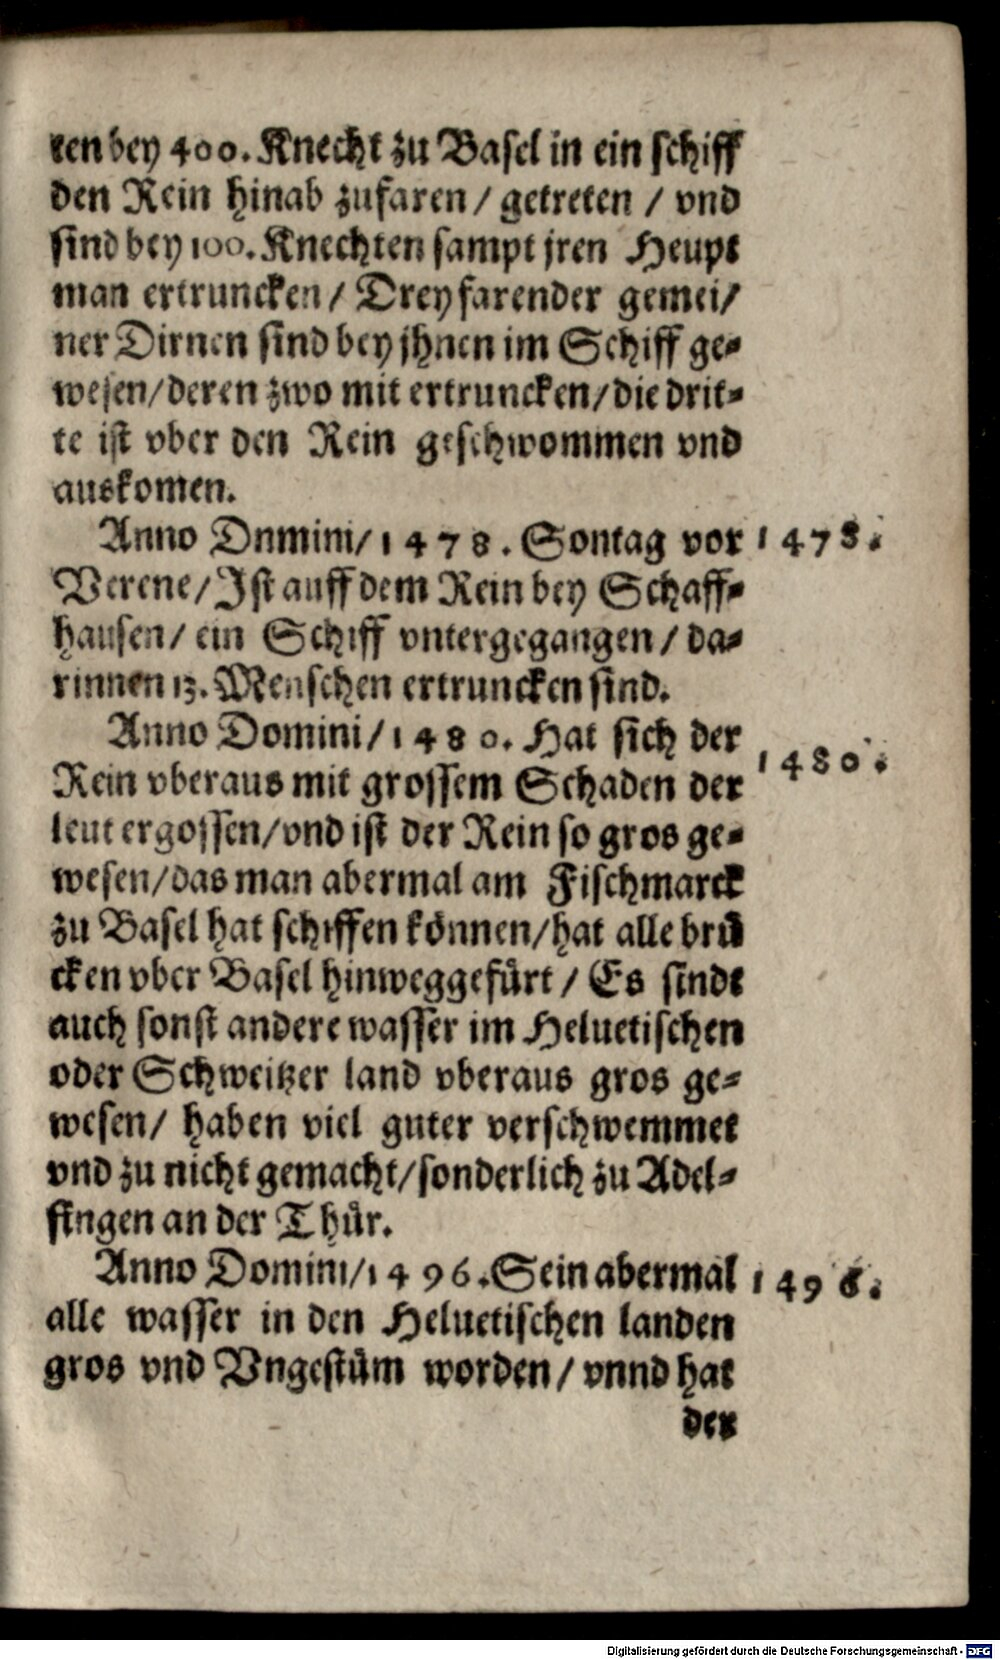 ten bey 400. Knecht zu Basel in ein schiff
den Rein hinab zufaren / getreten / vnd
sind bey 100. Knechten sampt jren Heupt
man ertruncken / Drey farender gemei/
ner Dirnen sind bey jhnen im Schiff ge-
wesen/deren zwo mit ertruncken/die drit-
te ist vber den Rein geschwommen vnd
auskomen.
Anno Dnmini/1478. Sontag vor 1478.
Verene/Jst auff dem Rein bey Schaff-
hausen/ ein Schiff vntergegangen / da-
rinnen 13. Menschen ertruncken sind.
Anno Domini/1480. Hat sich der
1480.
Rein vberaus mit grossem Schaden der
leut ergossen/vnd ist der Rein so gros ge-
wesen/das man abermal am Fischmarck
zu Basel hat schiffen können/hat alle brü
cken vber Basel hinweggefürt / Es sindt
auch sonst andere wasser im Heluetischen
oder Schweitzer land vberaus gros ge-
wesen/ haben viel guter verschwemmet
vnd zu nicht gemacht/sonderlich zu Adel-
fingen an der Thür.
Anno Domini/1496. Sein abermal 1496.
alle wasser in den Heluetischen landen
gros vnd Vngestüm worden/ vnnd hat
der
Digitalisierung gefördert durch die Deutsche Forschungsgemeinschaft - DFG